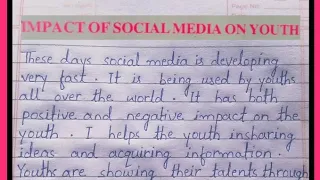 IMPACT OF SOCIAL MEDIA ON YOUTH
These days social media is developing
very fast. It is being used by youths
all over the world. It has both
positive and negative impact on the
youth. I helps the youth insharing
ideas and acquiring information.
Youths are showing their talents through